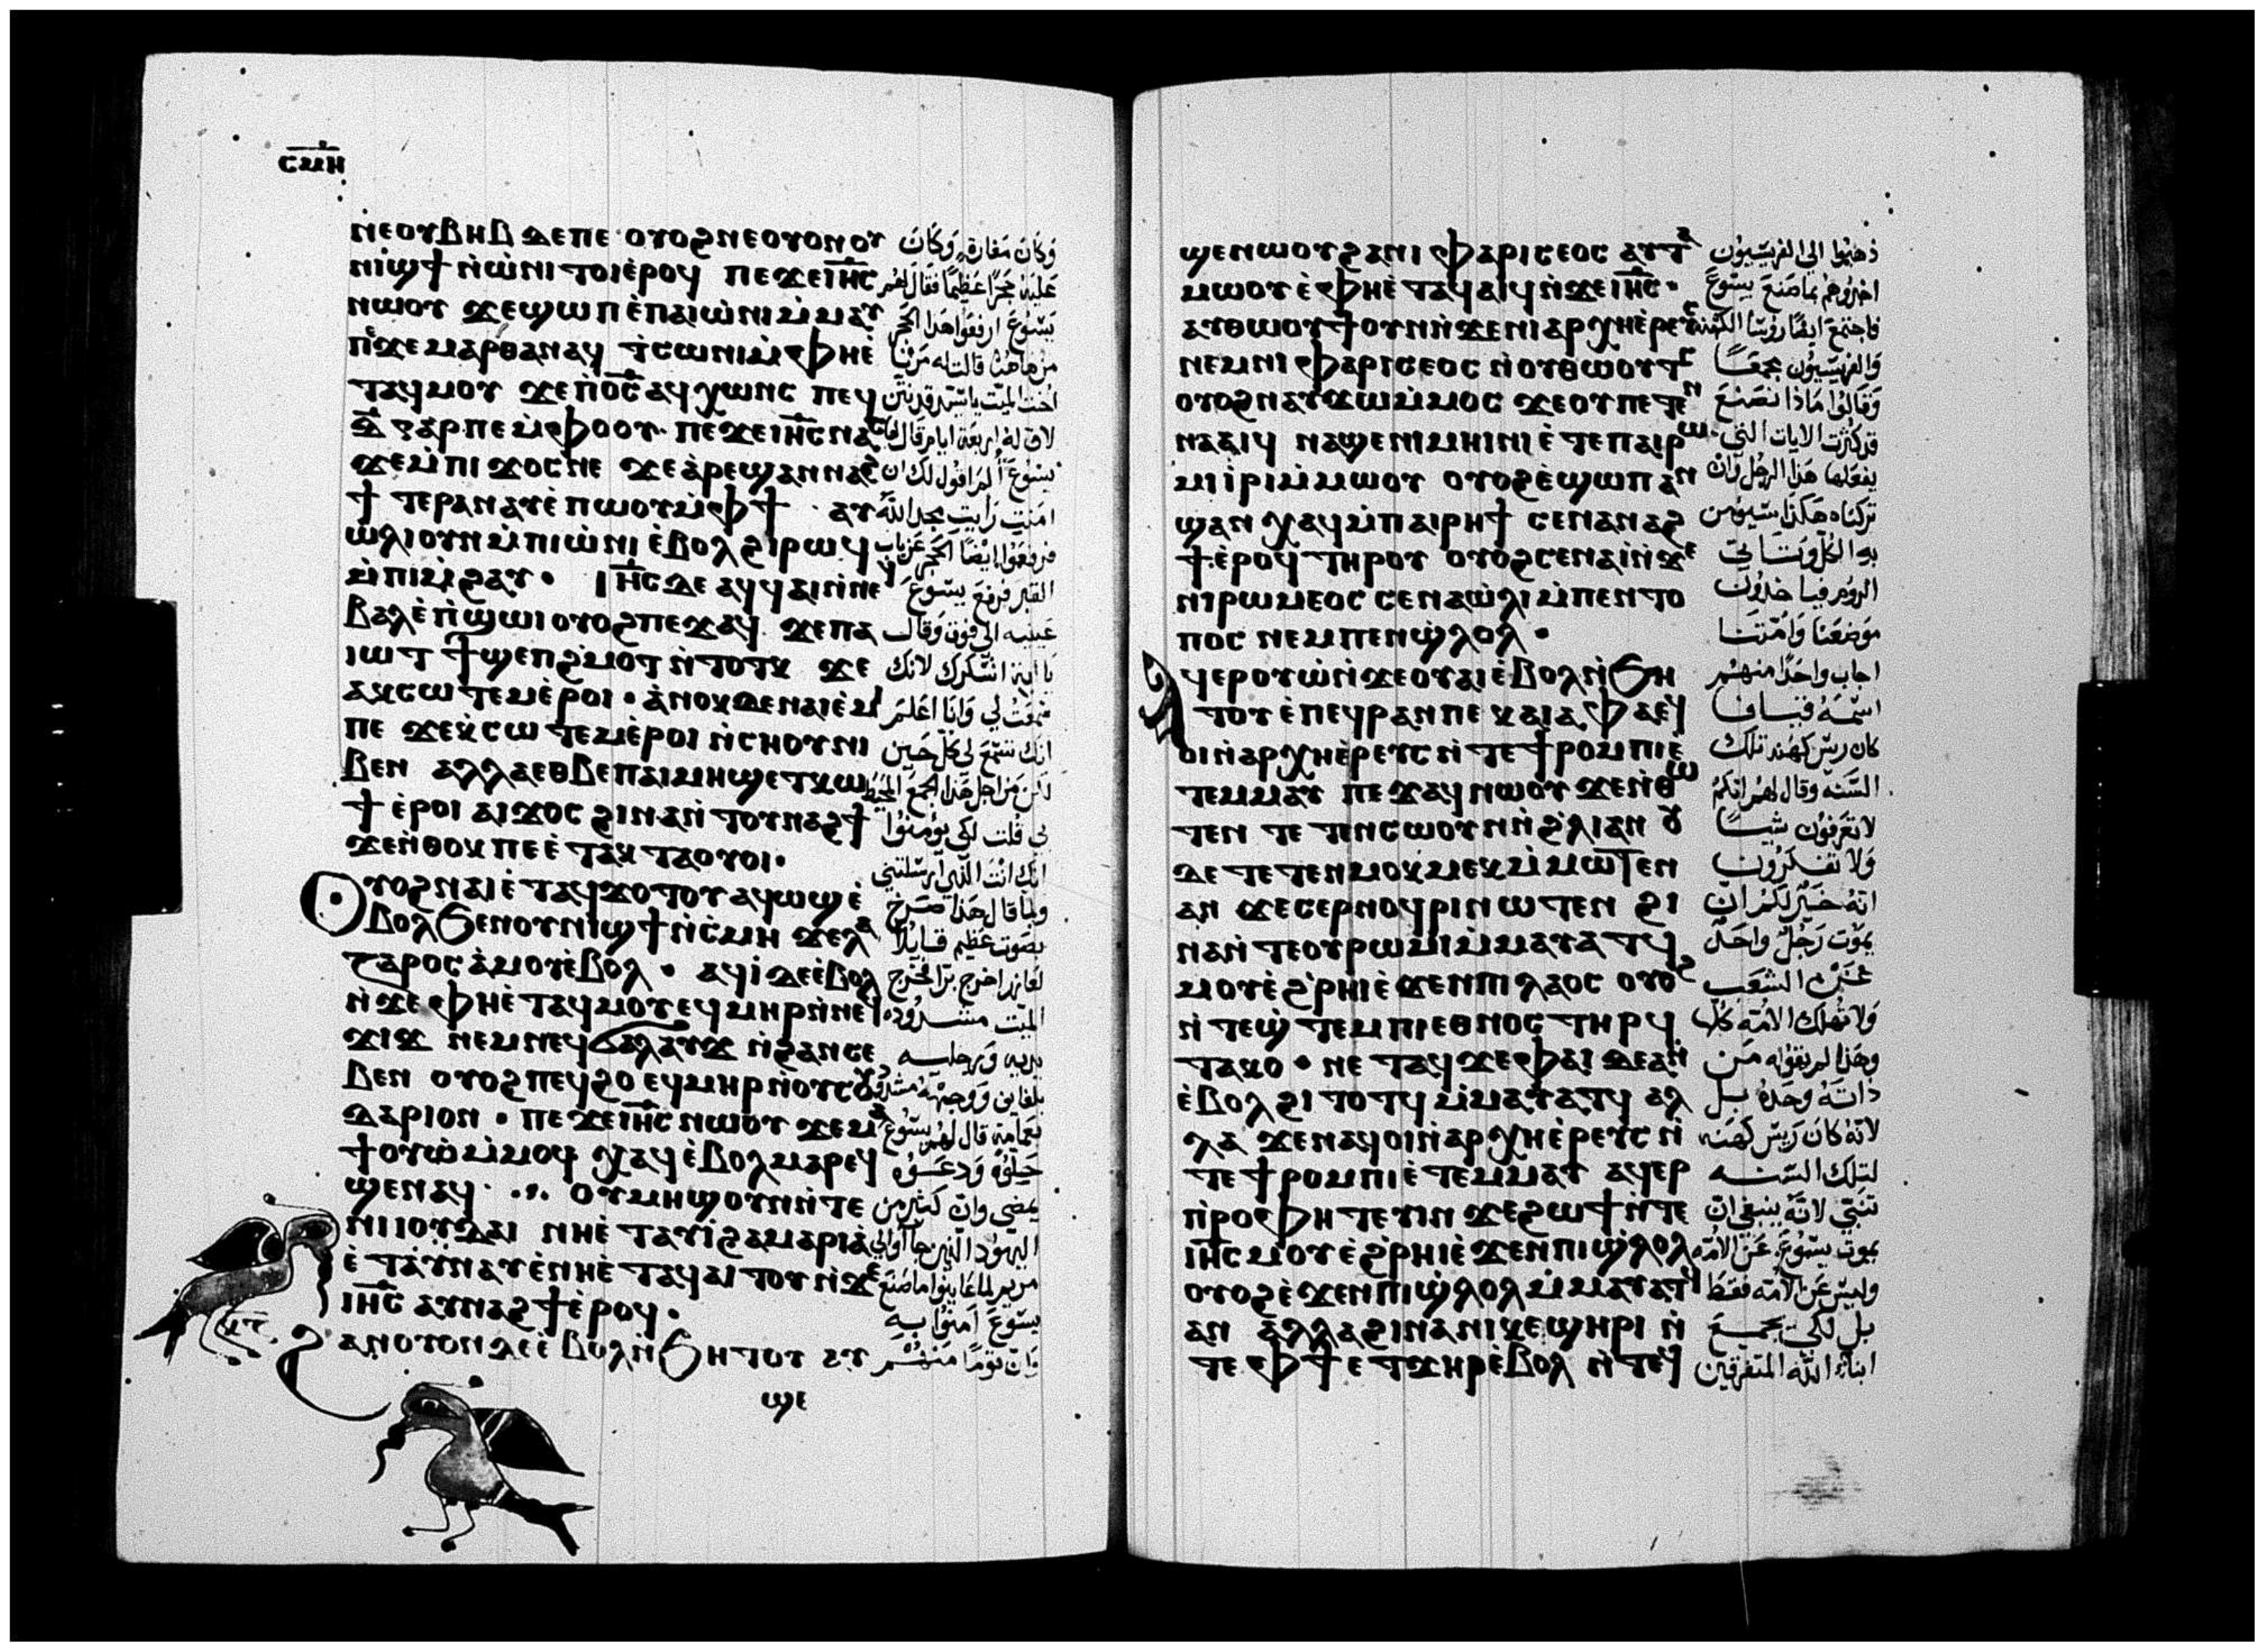 ⲥⲙⲏ
ⲛⲉⲟⲩⲃⲏⲃ ⲇⲉⲡⲉ ⲟⲩⲟϩⲛⲉⲟⲩⲟⲛⲟⲩ
ⲛⲓϣϯ ⲛ̀ⲱ̀ⲛⲓ ⲧⲟⲓⲉ̀ⲣⲟϥ ⲡⲉϫⲉⲓⲏ̅ⲥ̅
ⲛⲱⲟⲩ ϫⲉϣⲱⲡ ⲉ̀ⲡⲁⲓⲱ̀ⲛⲓ ⲙ̀ⲙⲁⲩ
ⲡⲉϫⲉ ⲙⲁⲣⲑⲁ ⲛⲁϥ ⲧ̀ⲥⲱⲛⲓ ⲙ̀ⲫⲏⲉ̀
ⲧⲁϥⲙⲟⲩ ϫⲉⲡ̅ⲟ̅ⲥ̅ ⲁϥⲭⲱⲛⲥ ⲡⲉϥ
ⲇ̅ ⲅⲁⲣⲡⲉ ⲙ̀ⲫⲟⲟⲩ ⲡⲉϫⲉⲓⲏ̅ⲥ̅ ⲛⲁⲥ
ϫⲉⲙ̀ⲡⲓ ϫⲟⲥⲛⲉ ϫⲉ ⲁ̀ⲣⲉϣⲁⲛⲛⲁϩ
ϯ ⲧⲉⲣⲁⲛⲁⲩⲉ̀ⲡⲱⲟⲩ ⲙ̀ⲫϯ ⲁⲩ
ⲱ̀ⲗⲓⲟⲩⲛ ⲙ̀ⲡⲓⲱ̀ⲛⲓ ⲉ̀ⲃⲟⲗ ϩⲓⲣⲱϥ
ⲙ̀ⲡⲓⲙ̀ϩⲁⲩ· ⲓⲏ̅ⲥ̅ ⲇⲉ ⲁϥϥⲁⲓⲛ̀ⲛⲉϥ
ⲃⲁⲗ ⲉ̀ⲡ̀ϣⲱⲓ ⲟⲩⲟϩ ⲡⲉϫⲁϥ ϫⲉⲡⲁ
ⲓⲱⲧ ϯϣⲉⲡϩ̀ⲙⲟⲧ ⲛ̀ⲧⲟⲧⲕ ϫⲉ
ⲁⲕⲥⲱⲧⲉⲙⲉ̀ⲣⲟⲓ· ⲁ̀ⲛⲟⲕ ⲇⲉ ⲛⲁⲓⲉ̀ⲙⲓ
ⲡⲉ ϫⲉⲕ̀ⲥⲱⲧⲉⲙⲉ̀ⲣⲟⲓ ⲛ̀ⲥⲏⲟⲩ ⲛⲓ
ⲃⲉⲛ ⲁⲗⲗⲁ ⲉⲑⲃⲉ ⲡⲁⲓⲙⲏϣ ⲉⲧⲕⲱ
ϯ ⲉ̀ⲣⲟⲓ ⲁⲓϫⲟⲥ ϩⲓⲛⲁ ⲛ̀ⲧⲟⲩⲛⲁϩϯ
ϫⲉⲛ̀ⲑⲟⲕ ⲡⲉ ⲉ̀ⲧⲁⲕ ⲧⲁⲟⲩⲟⲓ·
ⲟⲩⲟϩ ⲛⲁⲓ ⲉ̀ⲧⲁϥϫⲟⲧⲟⲩ ⲁϥⲱϣ ⲉ̀
ⲃⲟⲗ ϧⲉⲛⲟⲩⲛⲓϣϯ ⲛ̀ⲥ̀ⲙⲏ ϫⲉⲗⲁ
ⲍⲁⲣⲟⲥ ⲁ̀ⲙⲟⲩ ⲉ̀ⲃⲟⲗ· ⲁϥⲓ̀ ⲇⲉ ⲉ̀ⲃⲟⲗ
ⲛ̀ϫⲉ ⲫⲏⲉ̀ⲧⲁϥⲙⲟⲩ ⲉϥⲙⲏⲣ ⲛ̀ⲛⲉϥ
ϫⲓϫ ⲛⲉⲙ ⲛⲉϥϭⲁⲗⲁⲩϫ ⲛ̀ϩⲁⲛⲥⲉ
ⲃⲉⲛ ⲟⲩⲟϩ ⲡⲉϥϩⲟ ⲉϥⲙⲏⲣ ⲛ̀ⲟⲩⲥⲟⲩ
ⲇⲁⲣⲓⲟⲛ· ⲡⲉϫⲉⲓⲏ̅ⲥ̅ ⲛⲱⲟⲩ ϫⲉⲙⲁ
ϯⲟⲩⲱ ⲙ̀ⲙⲟϥ ⲭⲁϥ ⲉ̀ⲃⲟⲗ ⲙⲁⲣⲉϥ
ϣⲉⲛⲁϥ· ⲟⲩⲙⲏϣ ⲟⲩⲛ ⲛ̀ⲧⲉ
ⲛⲓⲓⲟⲩⲇⲁⲓ ⲛⲏⲉ̀ⲧⲁⲩⲓ̀ ϩⲁⲙⲁⲣⲓⲁ
ⲉ̀ⲧⲁⲩⲛⲁⲩ ⲉ̀ⲛⲏⲉ̀ⲧⲁϥⲁⲓⲧⲟⲩ ⲛ̀ϫⲉ
ⲓⲏ̅ⲥ̅ ⲁⲩⲛⲁϩϯ ⲉ̀ⲣⲟϥ·
ϩⲁⲛⲟⲩⲟⲛ ⲇⲉ ⲉ̀ⲃⲟⲗ ⲛ̀ϧⲏⲧⲟⲩ ⲁⲩ
ϣⲉ
وكان مغارة وكان
عليه حجرًا عظيمًا فقال لهم
يسوع ارفعوا هذا الحجر
من هاهنا قالت له مرثا
اخت الميت يا سيد قد نتن
لان له اربعة ايام قال لها
يسوع ألم اقول لك ان
امنتِ رايتِ مجد الله
فرفعوا ايضًا الحجر عن باب
القبر فرفع يسوع
عينيه الى فوق وقال
يا ابة اشكرك لانك
سمعت لي وانا اعلم
انك تسمع لي كل حين
لكن من اجل هذا الجمع المحيط
بي قلت لكي يؤمنوا
انك انت الذي ارسلتني
ولما قال هذا صرخ
بصوت عظيم قايلاً
لعازر اخرج برا فخرج
الميت مشدوده
يديه ورجليه
بلفايف ووجهه مشدود
بعمامة قال لهم يسوع
حلوه ودعوه
يمضي وان كثير من
اليهود الذين جاؤا الى
مريم لما عاينوا ما صنع
يسوع امنوا به
وان قومًا منهم
ϣⲉⲛⲱⲟⲩ ϩⲁ ⲛⲓⲫⲁⲣⲓⲥⲉⲟⲥ ⲁⲩⲧⲁ
ⲙⲱⲟⲩ ⲉ̀ⲫⲏⲉ̀ⲧⲁϥⲁⲓϥ ⲛ̀ϫⲉⲓⲏ̅ⲥ̅·
ⲁⲩⲑⲱⲟⲩϯ ⲟⲩⲛ ⲛ̀ϫⲉ ⲛⲓⲁⲣⲭⲏⲉ̀ⲣⲉⲩⲥ
ⲛⲉⲙ ⲛⲓⲫⲁⲣⲓⲥⲉⲟⲥ ⲛ̀ⲟⲩⲑⲱⲟⲩⲧⲥ
ⲟⲩⲟϩ ⲛⲁⲩϫⲱ ⲙ̀ⲙⲟⲥ ϫⲉⲟⲩ ⲡⲉⲧⲉⲛ
ⲛⲁⲁⲓϥ ⲛⲁϣⲉ ⲛⲓⲙⲏⲓⲛⲓ ⲉ̀ⲧⲉ ⲡⲁⲓⲣⲱ
ⲙⲓ ⲓ̀ⲣⲓ ⲙ̀ⲙⲱⲟⲩ ⲟⲩⲟϩ ⲉ̀ϣⲱⲡ ⲁⲛ
ϣⲁⲛⲭⲁϥ ⲙ̀ⲡⲁⲓⲣⲏϯ ⲥⲉⲛⲁⲛⲁϩ
ϯ ⲉ̀ⲣⲟϥ ⲧⲏⲣⲟⲩ ⲟⲩⲟϩ ⲥⲉⲛⲁⲓ̀ ⲛ̀ϫⲉ
ⲛⲓⲣⲱⲙⲉⲟⲥ ⲥⲉⲛⲁⲱ̀ⲗⲓ ⲙ̀ⲡⲉⲛⲧⲟ
ⲡⲟⲥ ⲛⲉⲙ ⲡⲉⲛϣ̀ⲗⲟⲗ·
ⲁϥⲉⲣⲟⲩⲱ̀ ⲛ̀ϫⲉⲟⲩⲁⲓ ⲉ̀ⲃⲟⲗ ⲛ̀ϧⲏ
ⲧⲟⲩ ⲉ̀ⲡⲉϥⲣⲁⲛ ⲡⲉ ⲕⲁⲓⲁⲫⲁ ⲉϥ
ⲟⲓ ⲛ̀ⲁⲣⲭⲏⲉ̀ⲣⲉⲩⲥ ⲛ̀ⲧⲉ ϯⲣⲟⲙⲡⲓ ⲉ̀
ⲧⲉⲙⲙⲁⲩ ⲡⲉϫⲁϥ ⲛⲱⲟⲩ ϫⲉⲛ̀ⲑⲱ
ⲧⲉⲛ ⲧⲉⲧⲉⲛⲥⲱⲟⲩⲛ ⲛ̀ϩ̀ⲗⲓ ⲁⲛ ⲟⲩ
ⲇⲉ ⲧⲉⲧⲉⲛⲙⲟⲕⲙⲉⲕ ⲙ̀ⲙⲱⲧⲉⲛ
ⲁⲛ ϫⲉⲥⲉⲣⲛⲟϥⲣⲓ ⲛⲱⲧⲉⲛ ϩⲓ
ⲛⲁ ⲛ̀ⲧⲉⲟⲩⲣⲱⲙⲓ ⲙ̀ⲙⲁⲩⲁⲧϥ
ⲙⲟⲩ ⲉ̀ϩ̀ⲣⲏⲓ ⲉ̀ϫⲉⲛ ⲡⲓⲗⲁⲟⲥ ⲟⲩⲟϩ
ⲛ̀ⲧⲉϣ̀ⲧⲉⲙ ⲡⲓⲉⲑⲛⲟⲥ ⲧⲏⲣϥ
ⲧⲁⲕⲟ· ⲛⲉⲧⲁϥϫⲉ ⲫⲁⲓ ⲇⲉ ⲁⲛ
ⲉ̀ⲃⲟⲗ ϩⲓⲧⲟⲧϥ ⲙ̀ⲙⲁⲩⲁⲧϥ ⲁⲗ
ⲗⲁ ϫⲉⲛⲁϥⲟⲓ ⲛ̀ⲁⲣⲭⲏⲉ̀ⲣⲉⲩⲥ ⲛ̀
ⲧⲉ ϯⲣⲟⲙⲡⲓ ⲉ̀ⲧⲉⲙⲙⲁⲩ ⲁϥⲉⲣ
ⲡ̀ⲣⲟⲫⲏⲧⲉⲩⲓⲛ ϫⲉϩⲱϯ ⲛ̀ⲧⲉ
ⲓⲏ̅ⲥ̅ ⲙⲟⲩ ⲉ̀ϩ̀ⲣⲏⲓ ⲉ̀ϫⲉⲛ ⲡⲓϣ̀ⲗⲟⲗ
ⲟⲩⲟϩ ⲉ̀ϫⲉⲛ ⲡⲓϣ̀ⲗⲟⲗ ⲙ̀ⲙⲁⲩⲁⲧϥ
ⲁⲛ ⲁⲗⲗⲁ ϩⲓⲛⲁ ⲛⲓⲕⲉϣⲏⲣⲓ ⲛ̀
ⲧⲉ ⲫϯ ⲉⲧϫⲏⲣ ⲉ̀ⲃⲟⲗ ⲛ̀ⲧⲉϥ
ذهبوا الى الفريسيون
اخبروهم بما صنع يسوع
فاجتمع ايضًا رؤسا الكهنة
والفريسيون مجمعًا
وقالوا ماذا نصنع
قد كثرت الايات التي
يفعلها هذا الرجل وان
تركناه هكذا سيؤمن
به الكل وتاتي
الروم فياخذون
موضعنا وامتنا
اجاب واحدًا منهم
اسمه قيافا
كان ريس كهنة تلك
السنة وقال لهم انكم
لا تعرفون شيًا
ولا تفكرون
انه خير لكم ان
يموت رجل واحد
عن الشعب
ولا تهلك الامة كلها
وهذا لم يقوله من
ذاته وحده بل
لانه كان ريس كهنة
لتلك السنة
تنبي لانه ينبغي ان
يموت يسوع عن الامة
وليس عن الامة فقط
بل لكي يجمع
ابناء الله المتفرقين